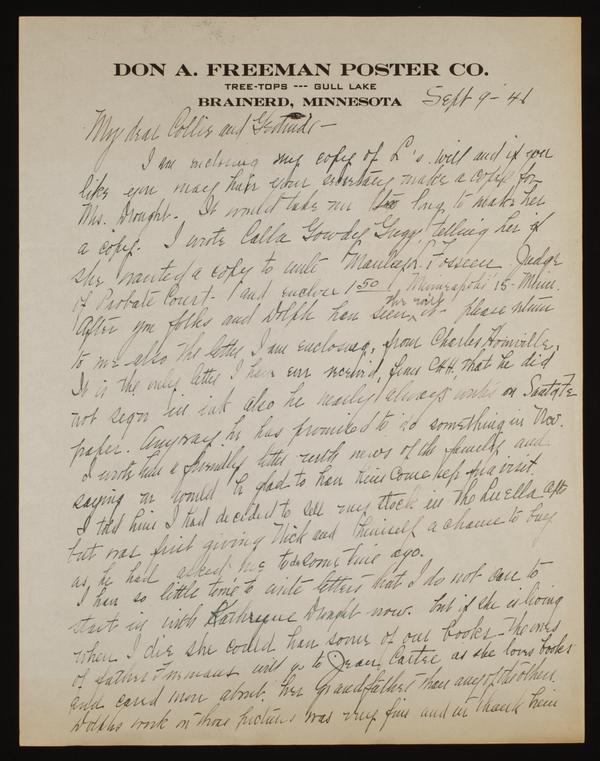 DON A. FREEMAN POSTER CO.
TREE-TOPS --- GULL LAKE
BRAINERD, MINNESOTA
Sept 9 - 41
My dear Collie and Gertrude -
I am enclosing my copy of L's will and if you
like you may have your secretary make a copy for
Mrs. Drought. It would take me too long to make her
a copy. I wrote Calla Gowdy Gregg telling her if
she wanted a copy to write Manley L. Fosseen - Judge
of Probate Court - and enclose 1 50 Minneapolis 15 - Minn.
After you folks and Dolph have seen the will it - please return
to me also the letter I am enclosing, from Charles
It is the only letter I have ever received from CHH, that he did
not sign in ink also he nearly always writes on Santa Fe
paper. Anyway he has promised to do something in Nov.
I wrote him a friendly letter with news of the family and
saying we would be glad to have him come up for a visit
I told him I had decided to sell my stock in the Luella apts
but was first giving Nick and himself a chance to buy
as, he had asked me to do some time ago.
I have so little time to write letters that I do not care to
start in with Kathregne Drought now. but if she is living
when I die she could have some of our books - The ones
of father Freemans will go to Jean Cartee, as she loves books
and cared more about her grandfather than any of the others.
Dolphs work on those pictures was very fine and we thank him